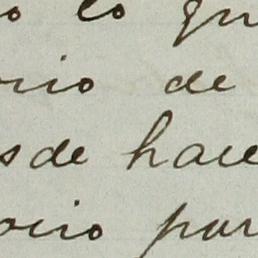 o lo qu
rio de
sde hace
orio par